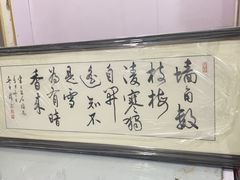 墙角数
枝梅
凌寒独
自开
遥知不
是雪
为有暗
香来